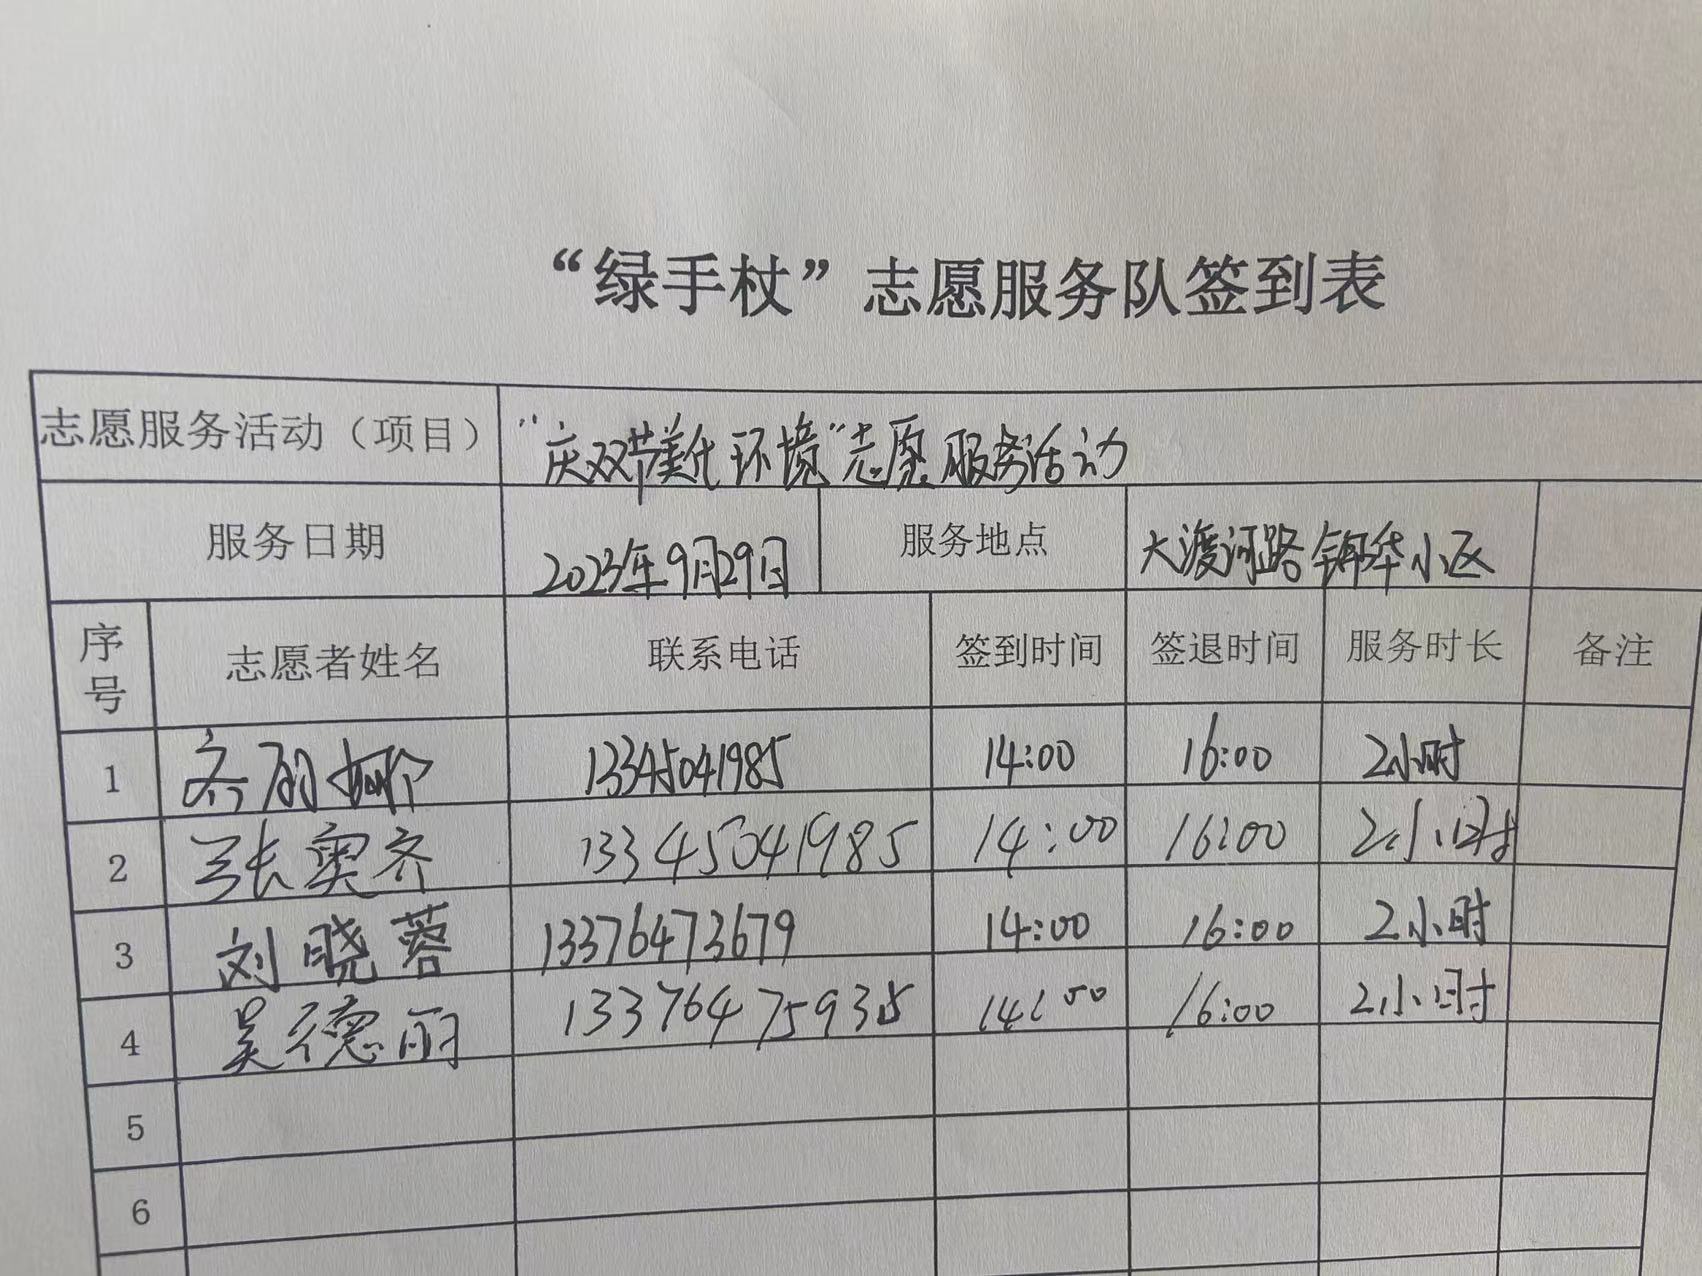 “绿手杖”志愿服务队签到表
志愿服务活动（项目） “庆双节美化环境”志愿服务活动
服务日期 2023年9月29日 服务地点 大渡河路锦华小区
序号 志愿者姓名 联系电话 签到时间 签退时间 服务时长 备注
1 13345041985 14:00 16:00 2小时
2 张奥齐 13345041985 14:00 16:00 2小时
3 刘晓蓉 13376473679 14:00 16:00 2小时
4 吴德丽 13376475935 14:00 16:00 2小时
5
6